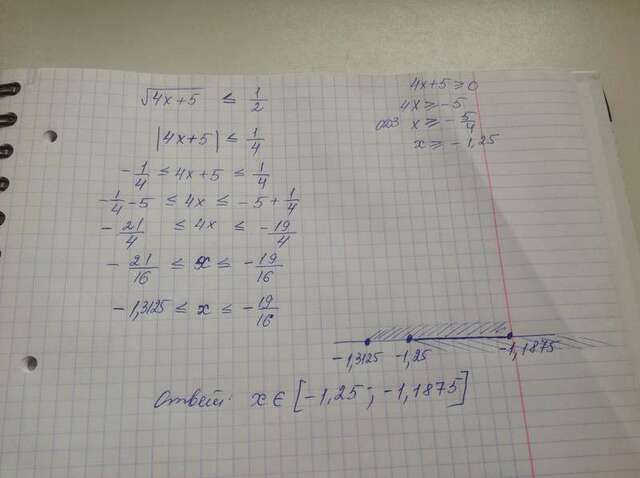 √4x+5 ≤ 1/2
|4x+5| ≤ 1/4
-1/4 ≤ 4x+5 ≤ 1/4
-1/4-5 ≤ 4x ≤ -5+1/4
-21/4 ≤ 4x ≤ -19/4
-21/16 ≤ x ≤ -19/16
-1,3125 ≤ x ≤ -19/16
4x+5 ≥ 0
4x ≥ -5
ОДЗ x ≥ -5/4
x ≥ -1,25
-1,3125 -1,25 -1,1875
Ответ: x ∈ [-1,25; -1,1875]